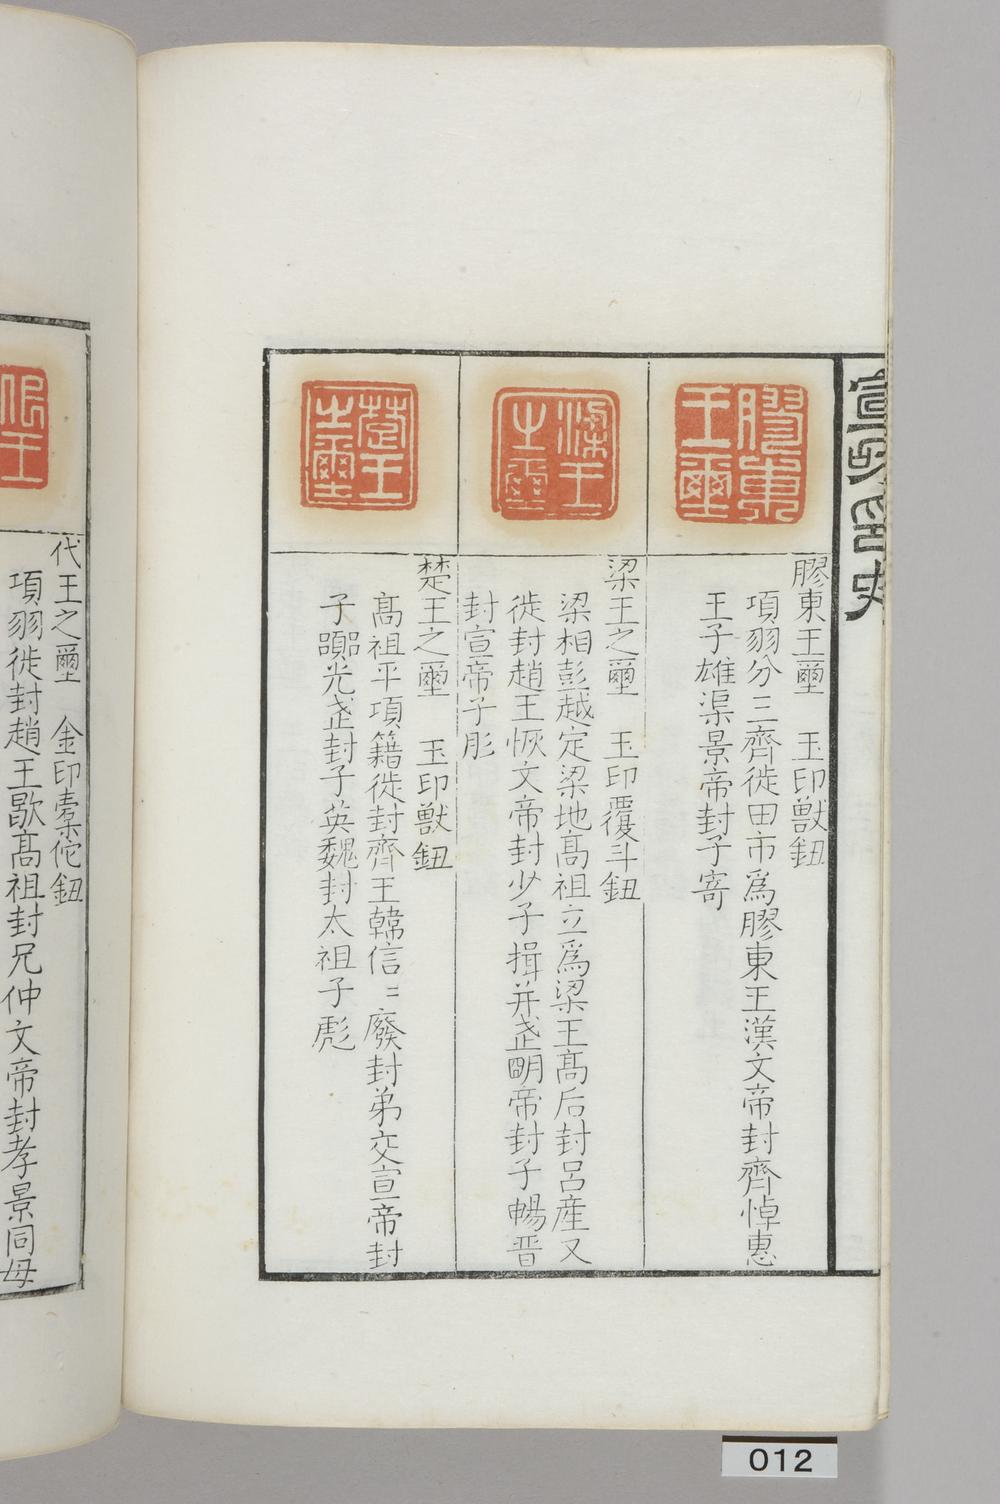 宣和印史
膠東王璽
膠東王壐　玉印獸鈕
項羽分三齊徙田市爲膠東王漢文帝封齊悼惠
王子雄渠景帝封子寄
梁王之璽
梁王之壐　玉印覆斗鈕
梁相彭越定梁地高祖立爲梁王高后封呂產又
徙封趙王恢文帝封少子揖并武明帝封子暢晋
封宣帝子肜
楚王之璽
楚王之壐　玉印獸鈕
高祖平項籍徙封齊王韓信〻廢封弟交宣帝封
子囂光武封子英魏封太祖子彪
代王之壐　金印橐佗鈕
項羽徙封趙王歇高祖封兄仲文帝封孝景同母
012